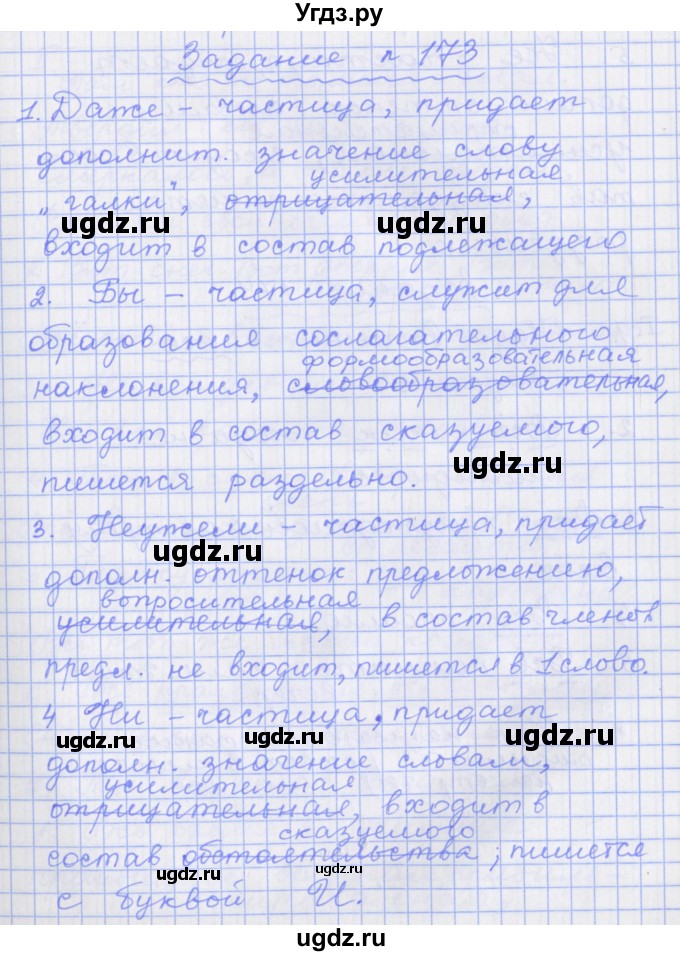 Угдз.ру
Задание п 173
1. Даже – частица, придает
дополнит. значение слову
усилительная
„галки“, отрицательная,
ugdz.ru ugdz.ru
входит в состав подлежащего
2. Бы – частица, служит для
образования сослагательного
формообразовательная
наклонения, словообразовательная,
входит в состав сказуемого,
ugdz.ru
пишется раздельно.
3. Неужели – частица, придает
ugdz.ru
дополн. оттенок предложению,
вопросительная
усилительная, в состав членов
предл. не входит, пишется в 1 слово.
4 Ни – частица, придает
ugdz.ru ugdz.ru ugdz.ru
дополн. значение словам,
усилительная
отрицательная, входит в
сказуемого
состав обстоятельства; пишется
ugdz.ru ugdz.ru
с буквой И.
ugdz.ru